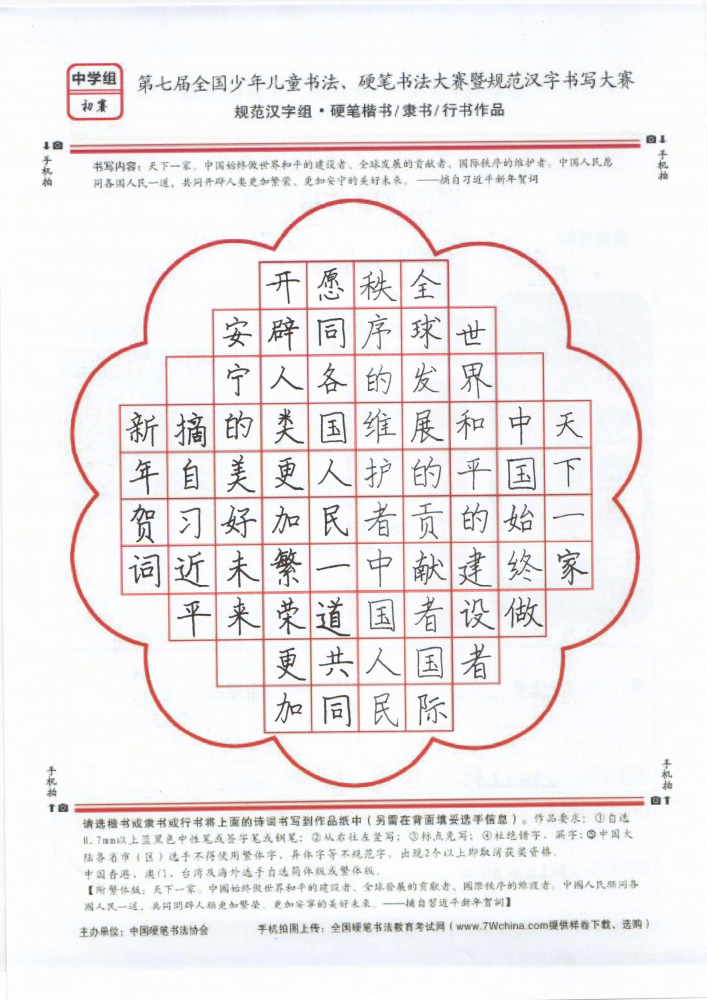 中学组
初赛
第七届全国少年儿童书法、硬笔书法大赛暨规范汉字书写大赛
规范汉字组·硬笔楷书/隶书/行书作品
手机拍
手机拍
书写内容：天下一家。中国始终做世界和平的建设者、全球发展的贡献者、国际秩序的维护者。中国人民愿
同各国人民一道，共同开辟人类更加繁荣、更加安宁的美好未来。 ——摘自习近平新年贺词
天下一家
中国始终做
世界和平的建设者
全球发展的贡献者国际
秩序的维护者中国人民
愿同各国人民一道共同
开辟人类更加繁荣更加
安宁的美好未来
摘自习近平
新年贺词
手机拍
手机拍
请选楷书或隶书或行书将上面的诗词书写到作品纸中（另需在背面填妥选手信息）。作品要求：①自选
0.7mm以上蓝黑色中性笔或签字笔或钢笔；②从右往左竖写；③标点免写；④杜绝错字、漏字；⑤中国大
陆各省市（区）选手不得使用繁体字、异体字等不规范字，出现2个以上即取消获奖资格。
中国香港、澳门、台湾及海外选手自选简体版或繁体版。
【附繁体版：天下一家。中國始終做世界和平的建設者、全球發展的貢獻者、國際秩序的維護者。中國人民願同各
國人民一道，共同開闢人類更加繁榮、更加安寧的美好未來。——摘自習近平新年賀詞】
主办单位：中国硬笔书法协会 手机拍图上传：全国硬笔书法教育考试网（www.7Wchina.com提供样卷下载、选购）